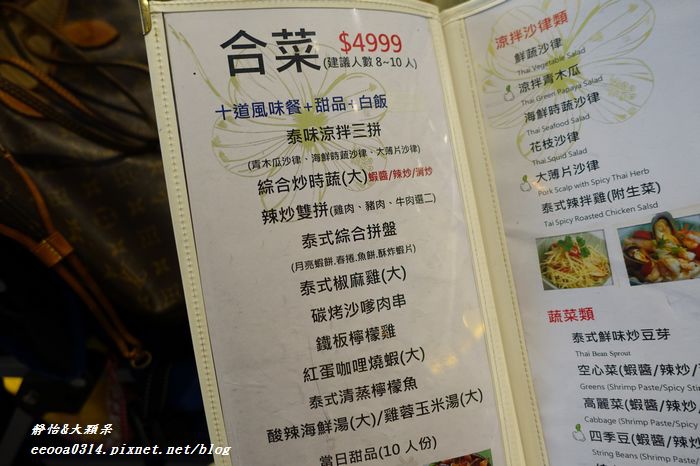 合菜 $4999
(建議人數 8~10 人)
十道風味餐+甜品+白飯
泰味涼拌三拼
(青木瓜沙律、海鮮時蔬沙律、大薄片沙律)
綜合炒時蔬(大)蝦醬/辣炒/清炒
辣炒雙拼(雞肉、豬肉、牛肉選二)
泰式綜合拼盤
(月亮蝦餅.春捲.魚餅.酥炸蝦片)
泰式椒麻雞(大)
碳烤沙嗲肉串
鐵板檸檬雞
紅蛋咖哩燒蝦(大)
泰式清蒸檸檬魚
酸辣海鮮湯(大)/雞蓉玉米湯(大)
當日甜品(10 人份)
涼拌沙律類
鮮蔬沙律
Thai Vegetable Salad
涼拌青木瓜
Thai Green Papaya Salad
海鮮時蔬沙律
Thai Seafood Salad
花枝沙律
Thai Squid Salad
大薄片沙律
Pork Scalp with Spicy Thai Herb
泰式辣拌雞(附生菜)
Tai Spicy Roasted Chicken Salsd
蔬菜類
泰式鮮味炒豆芽
Thai Bean Sprout
空心菜(蝦醬/辣炒/
Greens (Shrimp Paste/Spicy Sti
高麗菜(蝦醬/辣炒/
Cabbage (Shrimp Paste/Spicy
四季豆(蝦醬/辣炒
String Beans (Shrimp Paste/Sp
靜怡&大顆呆
eeooa0314.pixnet.net/blog